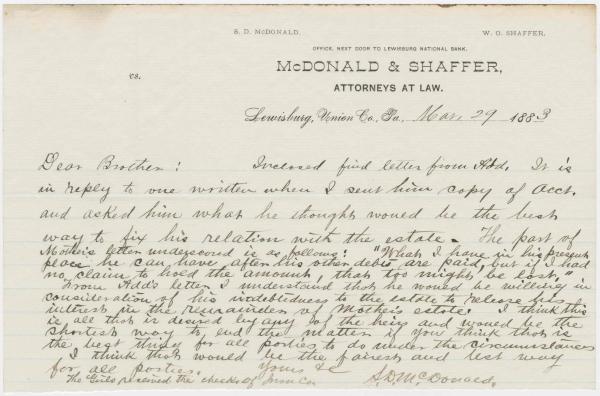 S. D. McDONALD.
W. O. SHAFFER.
OFFICE, NEXT DOOR TO LEWISBURG NATIONAL BANK.
McDONALD & SHAFFER,
ATTORNEYS AT LAW.
vs.
Lewisburg, Union Co., Pa., Mar. 29 1883
Dear Brother: Inclosed find letter from Add. It is
in reply to one written when I sent him copy of Acct.
and asked him what he thought would be the best
way to fix his relation with the estate. The part of
Mother's letter underscored is as follows: "What I have in his present
place he can have after his other debts are paid, but if I had
no claim to hold the amount, that too might be lost."
From Add's letter I understand that he would be willing in
consideration of his indebtedness to the estate to release his
interest in the remainder of Mother's estate. I think this
is all that is desired by any of the heirs and would be the
shortest way to end the matter if you think that is
the best thing for all parties to do under the circumstances
I think that would be the fairest and best way
for all parties. Yours &c
The Girls received the checks of Co S. D. McDonald.